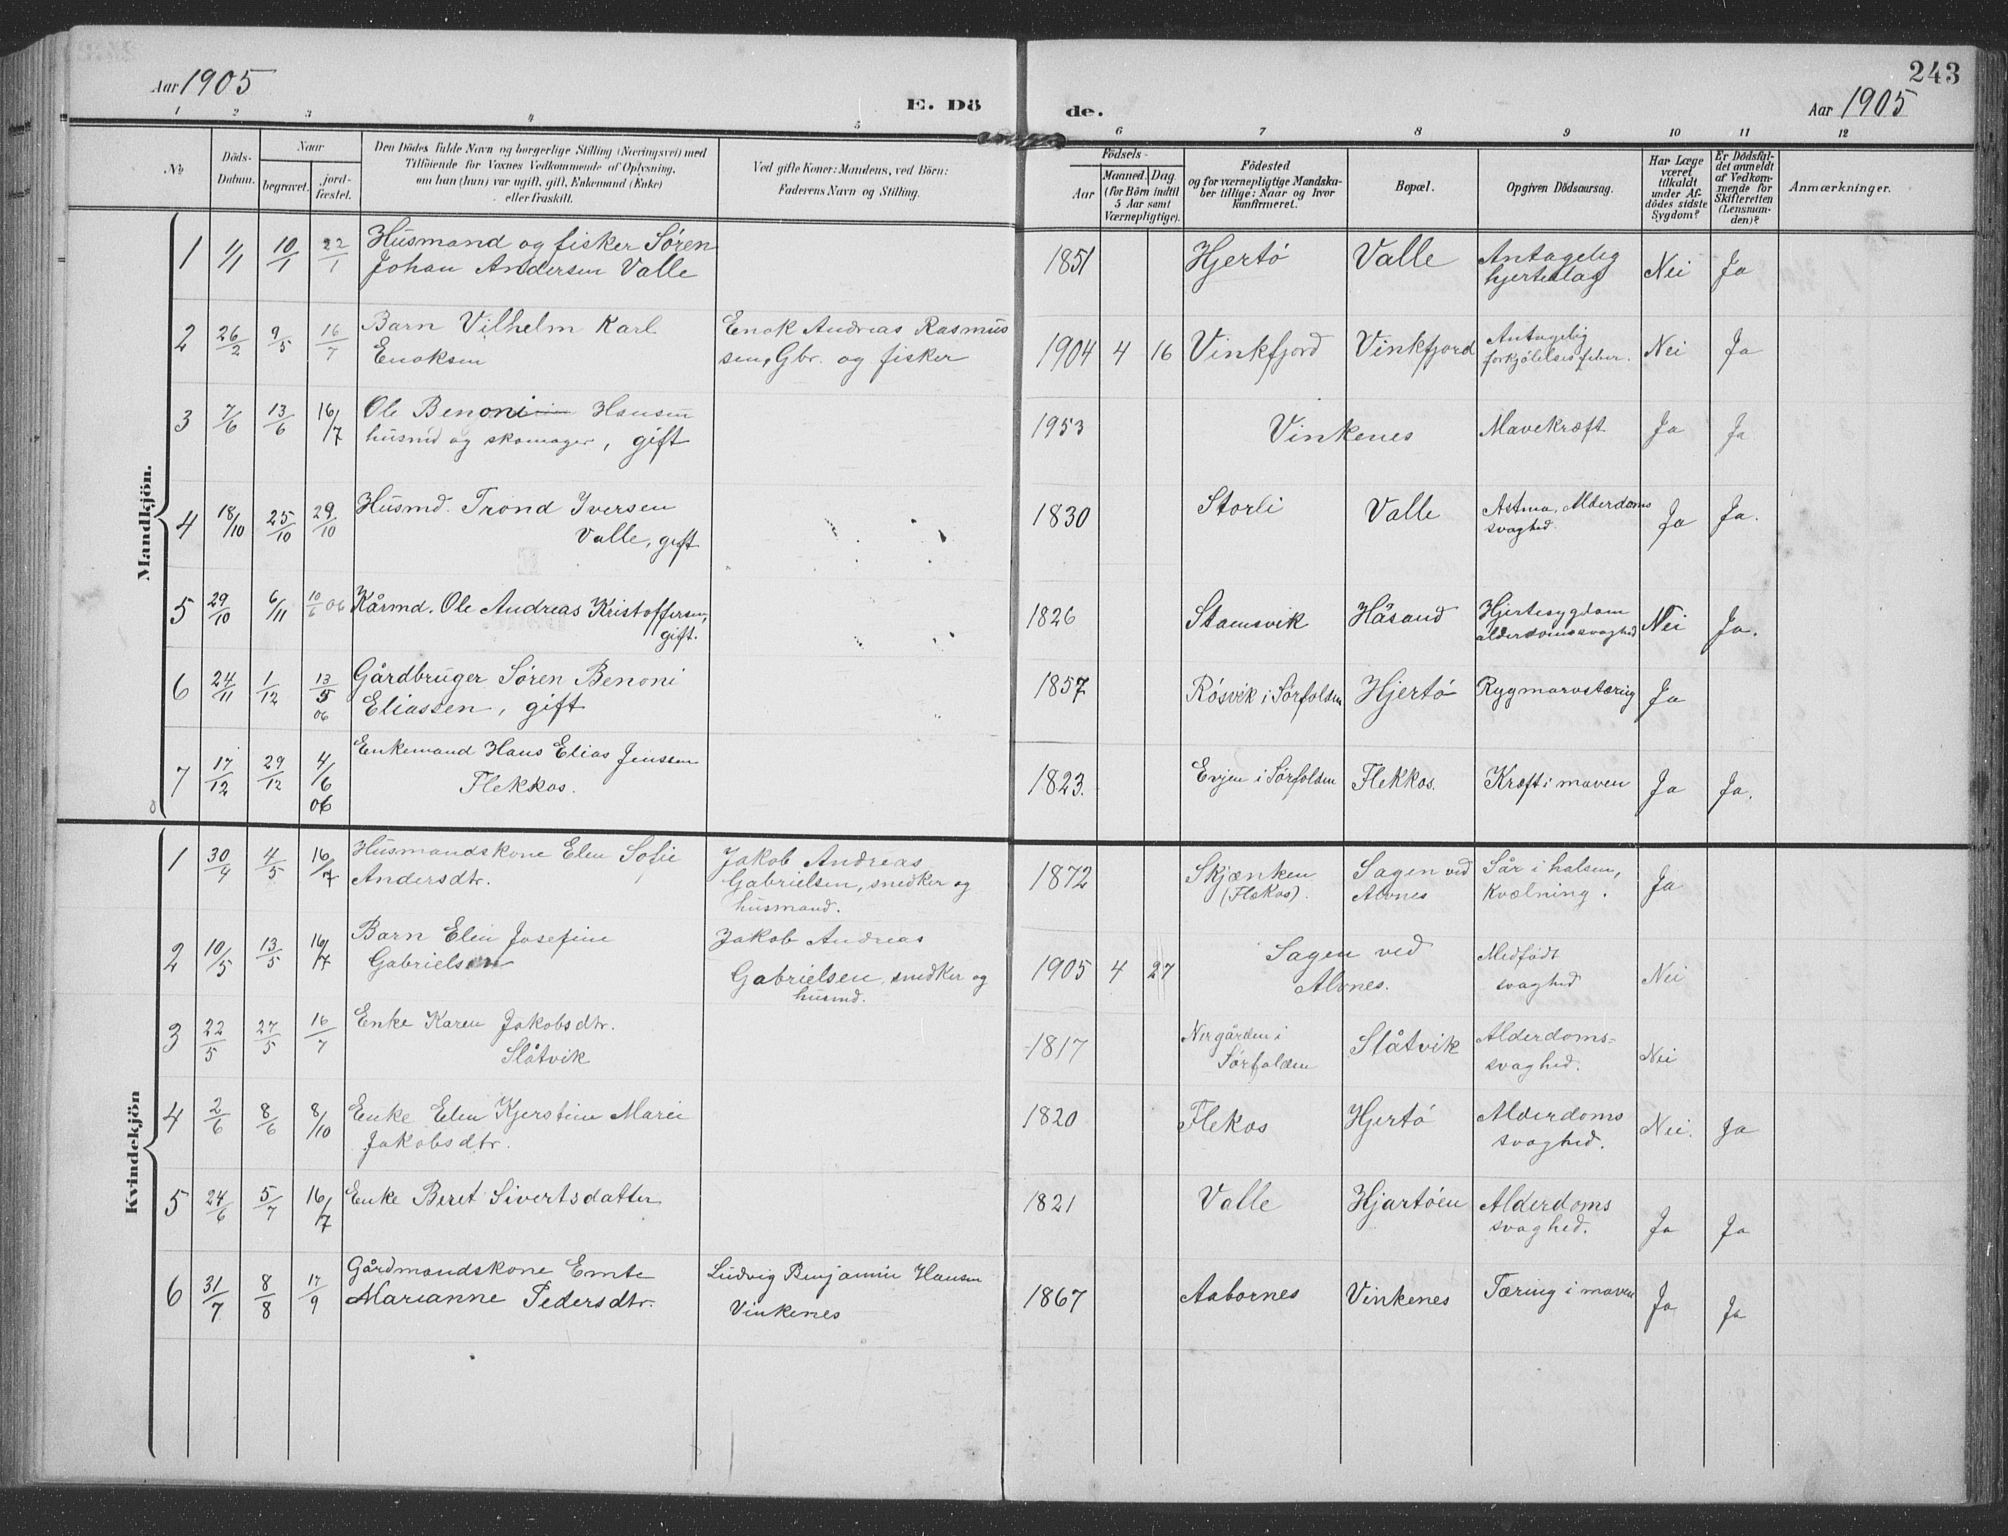 243
Aar 1905
E. Dö
de.
Aar 1905
1 2 3 4 5 6 7 8 9 10 11 12
No.
Döds-
Datum.
Naar
begravet.
jord-
fæstet.
Den Dödes fulde Navn og borgerlige Stilling (Næringsvei) med
Tilföiende for Voxnes Vedkommende af Oplysning,
om han (hun) var ugift, gift, Enkemand (Enke)
eller fraskilt.
Ved gifte Koner: Mandens, ved Börn:
Faderens Navn og Stilling.
Födsels-
Aar
Maaned. Dag.
(for Börn indtil
5 Aar samt
Værnepligtige).
Födested
og for værnepligtige Mandska-
ber tillige: Naar og hvor
konfirmeret.
Bopæl.
Opgiven Dödsaarsag.
Har Læge
været
tilkaldt
under Af-
dödes sidste
Sygdom?
Er Dödsfal-
det anmeldt
af Vedkom-
mende for
Skifteretten
(Lensman-
den)?
Anmærkninger.
Mandkjön.
1 1/1 10/1 22/1 Husmand og fisker Søren 1851 Hjertö Valle Antagelig Nei Ja
Johan Andersen Valle hjerteslag
2 26/2 9/5 16/7 Barn Vilhelm Karl Enok Andreas Rasmus 1904 4 16 Vinkfjord Vinkfjord Antagelig Nei Ja
Enoksen sen, Gbr. og fisker forkjölelsesfeber.
3 7/6 13/6 16/7 Ole Benoni Hansen 1953 Vinkenes Mavekræft Ja Ja
husmd og skomager, gift
4 18/10 25/10 29/10 Husmd. Trond Iversen 1830 Storli Valle Astma, Alderdoms Ja Ja.
Valle, gift svaghed.
5 29/10 6/11 10/6 06 Kårmd. Ole Andreas Kristoffersen, 1826 Stamsvik Håsand Hjertesygdom Nei Ja.
gift. alderdomssvaghed
6 24/11 1/12 13/5 06 Gårdbruger Søren Benoni 1857 Rösvik i Sørfolden Hjertö Rygmarvstæring Ja
Eliassen, gift
7 17/12 29/12 4/6 06 Enkemand Hans Elias Jenssen 1823. Evjen i Sørfolden Flekkos. Kræft i maven Ja Ja.
Flekkos.
Kvindekjön
1 30/4 4/5 16/7 Husmandskone Elen Sofie Jakob Andreas 1872 Skjænken Sagen ved Sår i halsen, Ja
Andersdtr. Gabrielsen, snedker og (Flekos). Alvnes Kvælning.
husmand.
2 10/5 13/5 16/7 Barn Elen Josefine Jakob Andreas 1905 4 27 Sagen ved Medfödt Nei
Gabrielsen Gabrielsen, snedker og Alvnes. svaghed
husmd.
3 22/5 27/5 16/7 Enke Karen Jakobsdtr. 1817 Nergården i Slåtvik Alderdoms- Nei
Slåtvik Sørfolden svaghed.
4 2/6 8/6 8/10 Enke Elen Kjerstine Marie 1820 Flekos Hjertö Alderdoms Nei. Ja
Jakobsdtr. svaghed.
5 24/6 5/7 16/7 Enke Beret Sivertsdatter 1821 Valle Hjartöen Alderdoms Ja Ja
svaghed.
6 31/7 8/8 17/9 Gårdmandskone Emte Ludvig Benjamin Hansen 1867 Aabornes Vinkenes Tæring i maven Ja Ja
Marianne Pedersdtr. Vinkenes